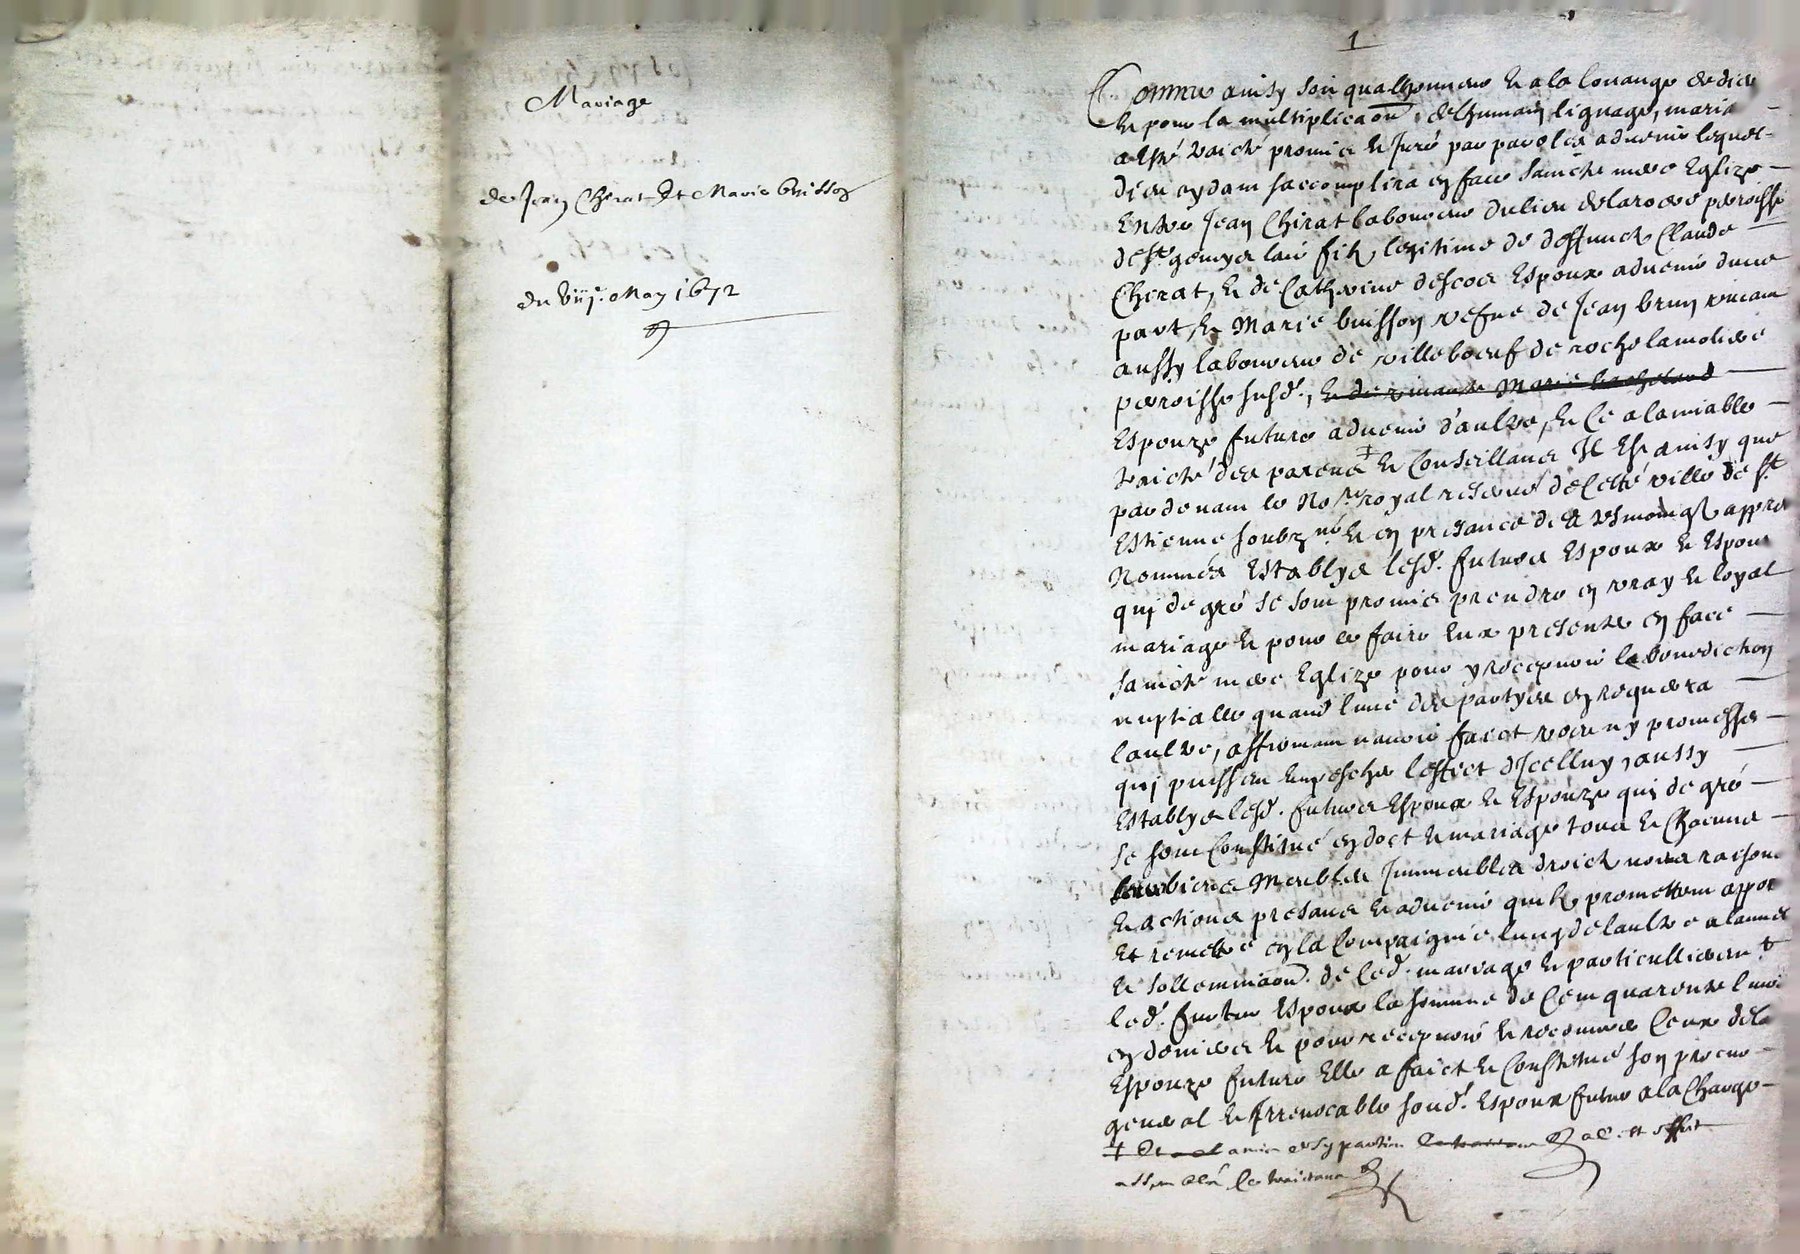 Mariage
de Jean Chirat Et Marie buisson
du viije. May 1672
1
Comme ainsy soit qua lhonneur Et a la louange de dieu
Et pour la multiplicaon. de lhumain lignage, maria
a esté traicté promis Et Juré par parolles aduenir lequel
dieu aydant saccomplira en face saincte mere Eglize
Entre Jean Chirat laboureur du lieu de paroisse
de St. genyes laiè filz legitime de deffunct Claude
Chirat, Et de Catherine descos Espoux aduenir dune
part, Et Marie buisson vefue de Jean brun viuant
aussy laboureur de villeboeuf de roche la moliere
parroisse susd., Et de viuante Marie
Espouze future aduenir daultre, Et ce a lamiable
traicté des parents + Et Conseillants Il Est ainsy que
par deuant le Nore. royal reserué de ceste ville de St.
Estienne soubzné. Et en presance des tesmoingz appres
Nommés Establys lesd. futurs Espoux Et Espouze
quj de gré se sont promis prendre en vray Et loyal
mariage Et pour ce faire Eux presenter en face
saincte mere Eglize pour y recepuoir la benediction
nuptialle quand lune des partyes en requerra
laultre, affirmant nauoir faict voeu ny promesse
quj puissent Empescher leffect dIcelluy, aussy
Establys lesd. futurs Espoux Et Espouze quj de gré
se sont Constitué en doct Et mariage tous Et Chacuns
leurs biens Meubles Immeubles droictz noms raisons
Et actions presans Et aduenir quilz promettent appor
Et remettre en la Compaignie lung de laultre a lanne
Et sollemnizaon. de ced. mariage Et particullieremt.
led. futur Espoux la somme de Cent quarente liures
en deniers Et pour recepuoir Et recouurer Ceux de la
Espouze future Elle a faict Et Constitué son procur
general Et Irreuocable sond. Espoux futur a la Charge
+ Et amis desd parties a cest effect
assemblés Ce traictant